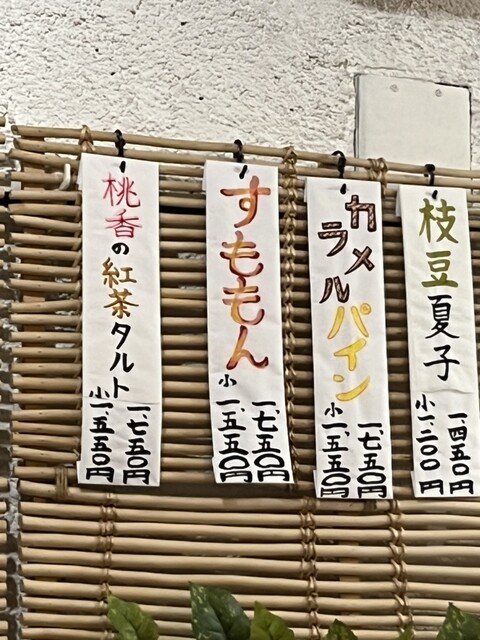 枝豆夏子
一四五〇円
小一、二〇〇円
カラメルパイン
一、七五〇円
小一、五五〇円
すももん
一、七五〇円
小一、五五〇円
桃香の紅茶タルト
一、七五〇円
小一、五五〇円